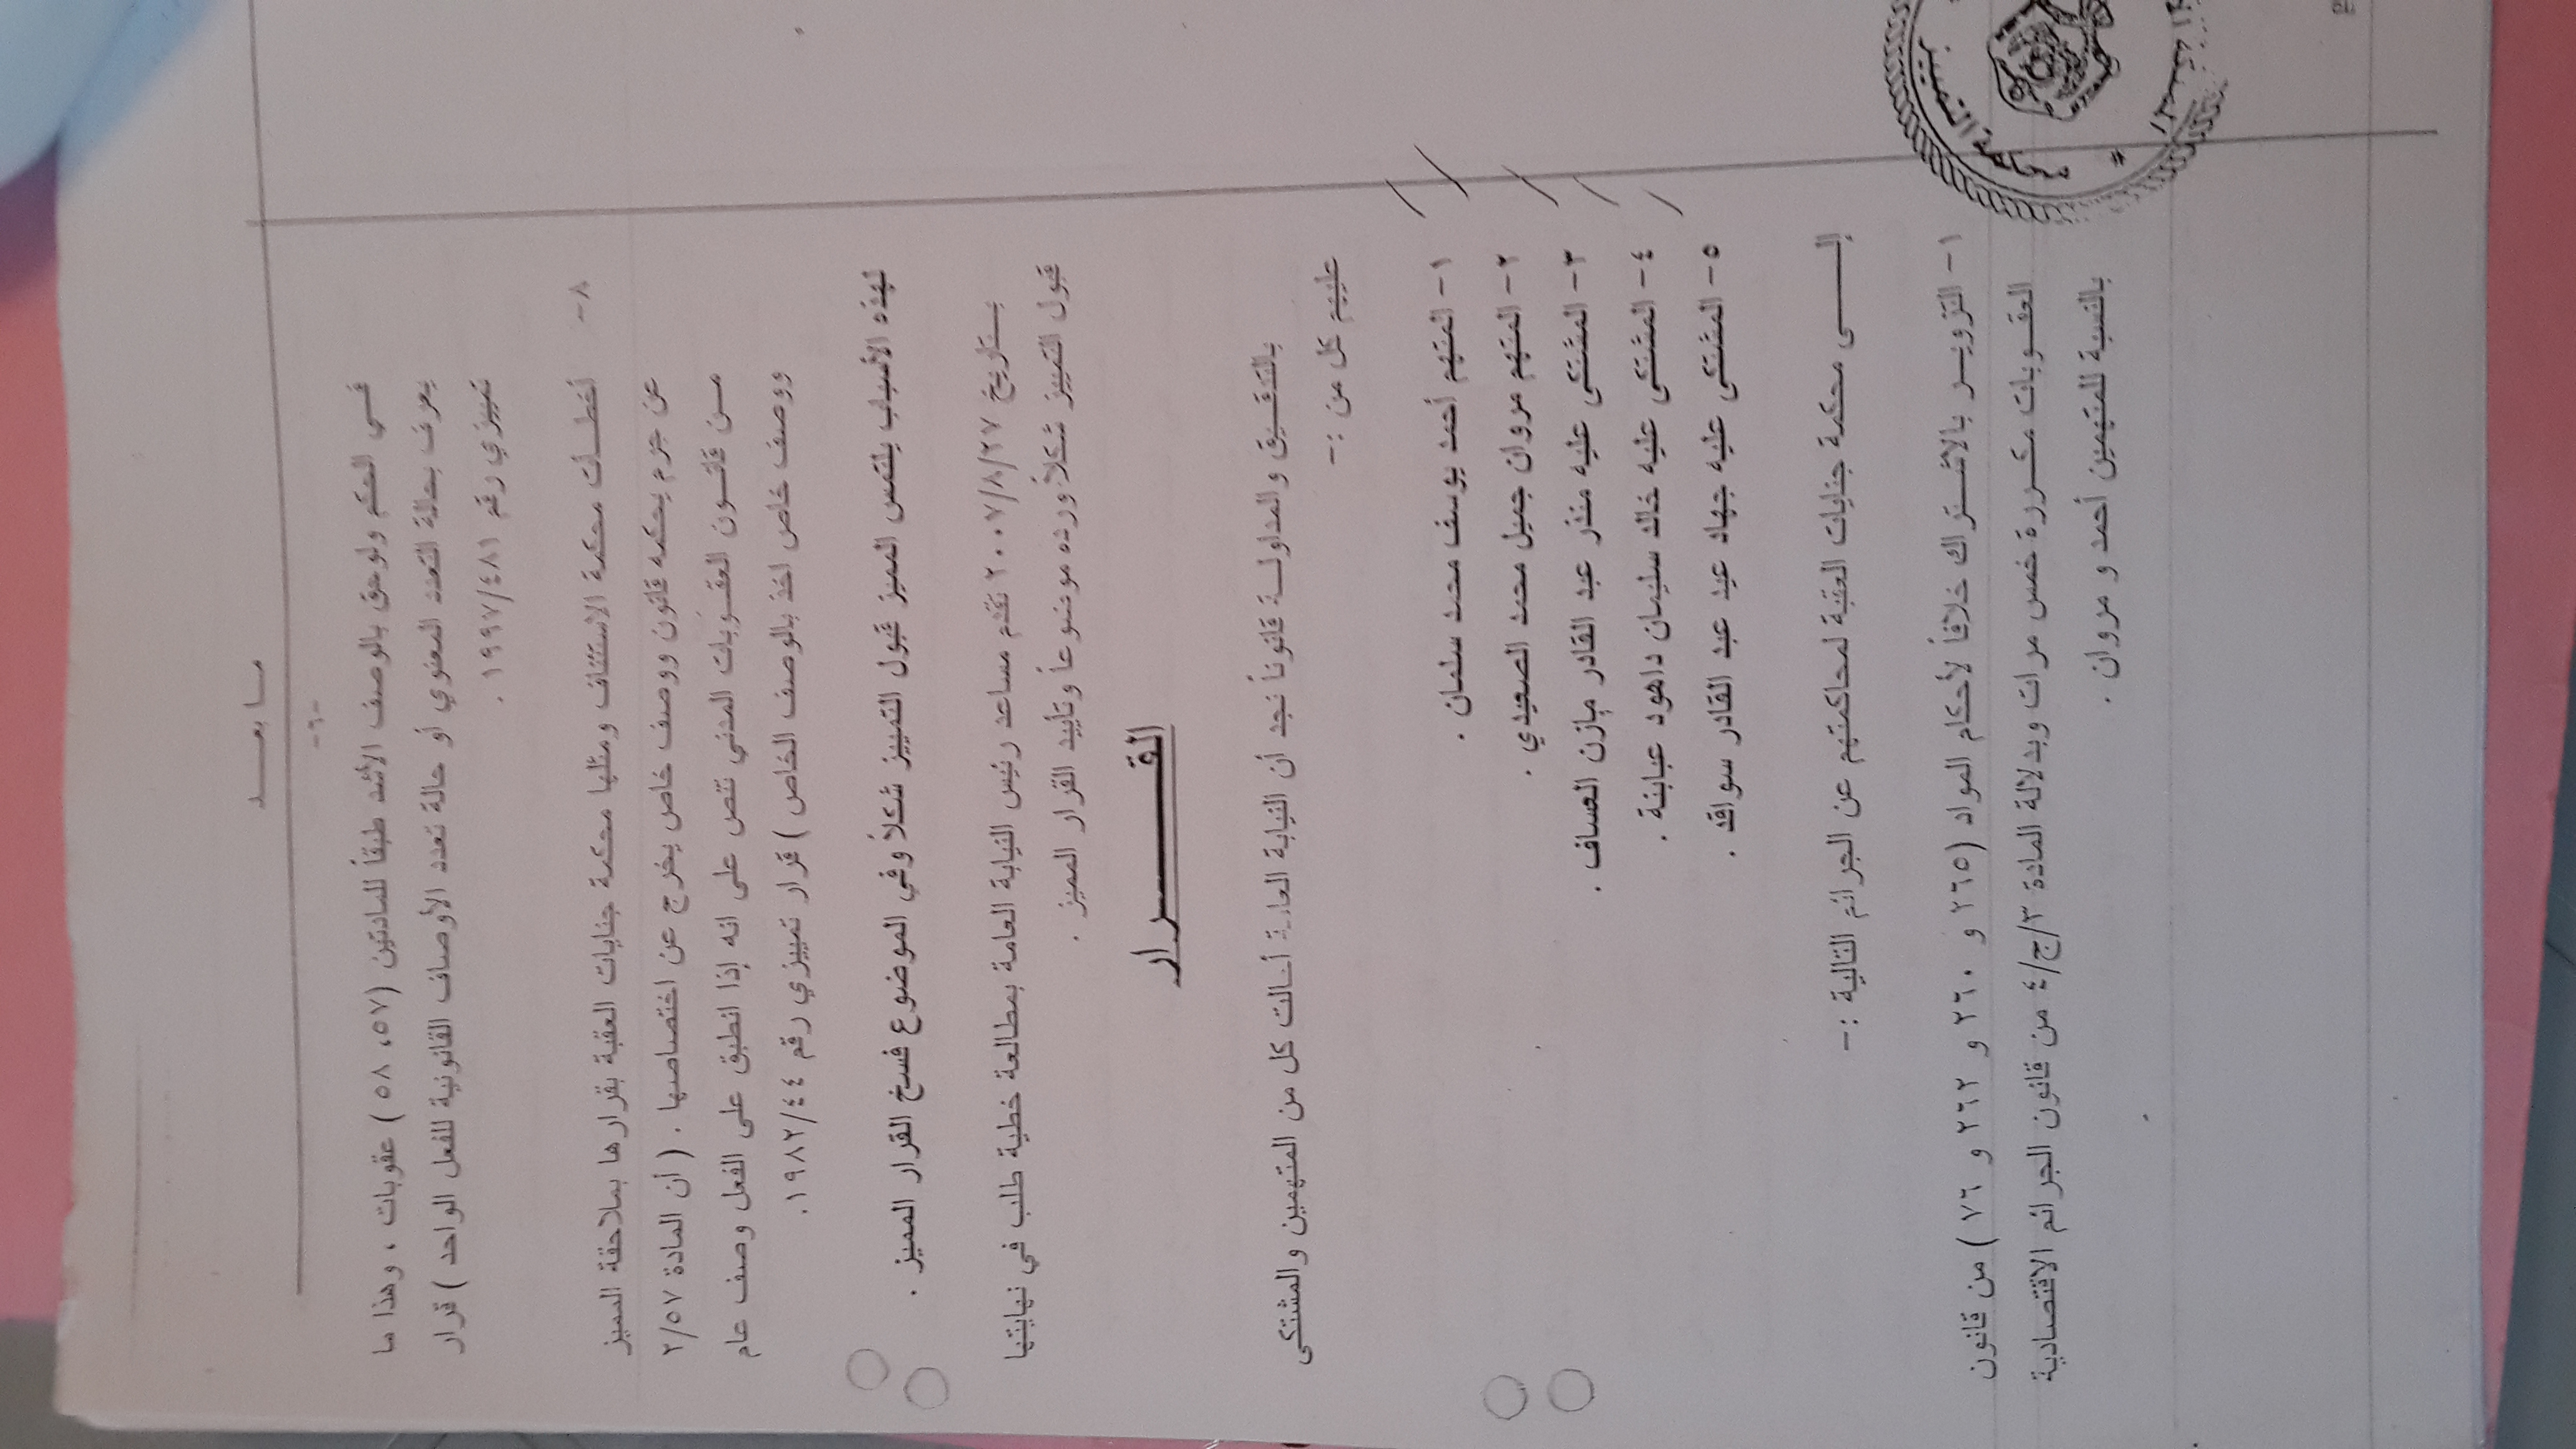 ما بعد
-٦-
في الحكم ولوحق بالوصف الأشد طبقاً للمادتين (٥٧، ٥٨) عقوبات ، وهذا ما
يعرف بحالة التعدد المعنوي أو حالة تعدد الأوصاف القانونية للفعل الواحد ) قرار
تمييزي رقم ١٩٩٧/٤٨١ .
٨- أخطأت محكمة الاستئناف ومثلها محكمة جنايات العقبة بقرارها بملاحقة المميز
عن جرم يحكمه قانون ووصف خاص يخرج عن اختصاصها . ( أن المادة ٢/٥٧
من قانون العقوبات المدني تنص على انه إذا انطبق على الفعل وصف عام
ووصف خاص اخذ بالوصف الخاص ) قرار تمييزي رقم ١٩٨٢/٤٤.
لهذه الأسباب يلتمس المميز قبول التمييز شكلاً وفي الموضوع فسخ القرار المميز .
بتاريخ ٢٠٠٧/٨/٢٧ تقدم مساعد رئيس النيابة العامة بمطالعة خطية طلب في نهايتها
قبول التمييز شكلاً ورده موضوعاً وتأييد القرار المميز .
القرار
بالتدقيق والمداولة قانوناً نجد أن النيابة العامة أحالت كل من المتهمين والمشتكى
عليهم كل من :-
١- المتهم أحمد يوسف محمد سلمان .
٢- المتهم مروان جميل محمد الصعيدي .
٣- المشتكى عليه منذر عبد القادر مازن العساف .
٤- المشتكى عليه خالد سليمان داهود عبابنة .
٥- المشتكى عليه جهاد عيد عبد القادر سواقد .
إلى محكمة جنايات العقبة لمحاكمتهم عن الجرائم التالية :-
١- التزوير بالاشتراك خلافاً لأحكام المواد (٢٦٥ و ٢٦٠ و ٢٦٢ و ٧٦ ) من قانون
العقوبات مكررة خمس مرات وبدلالة المادة ٣/ج/٤ من قانون الجرائم الاقتصادية
بالنسبة للمتهمين أحمد و مروان .
محكمة التمييز